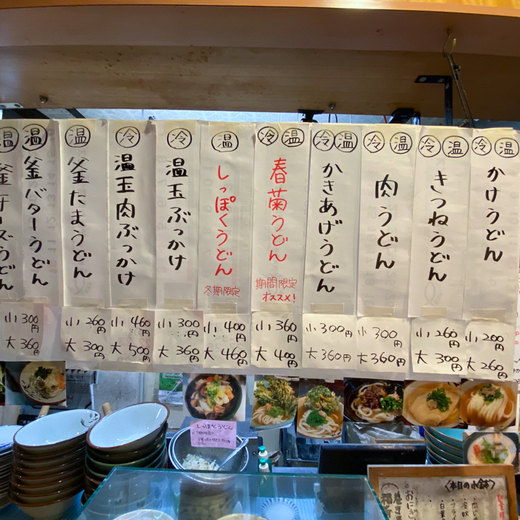 冷 温
かけうどん
小 200円
大 260円
冷 温
きつねうどん
小 260円
大 300円
冷 温
肉うどん
小 300円
大 360円
冷 温
かきあげうどん
小 300円
大 360円
冷 温
春菊うどん
期間限定
オススメ!
小 360円
大 400円
温
しっぽくうどん
冬季限定
小 400円
大 460円
冷
温玉ぶっかけ
小 300円
大 360円
冷
温玉肉ぶっかけ
小 460円
大 500円
温
釜たまうどん
小 260円
大 300円
温
釜バターうどん
小 300円
大 360円
温
本日の小鉢